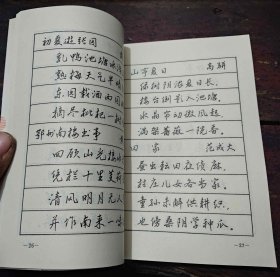 初夏游张园
乳鸭池塘水
熟梅天气半
东园载酒西园
摘尽枇杷一树
鄂州南楼书事
四顾山光接水
栏十里芰荷
清风明月无人
并作南来一味
—26—
山亭夏日 高骈
绿树阴浓夏日长，
楼台倒影入池塘。
水晶帘动微风起，
满架蔷薇一院香。
田家 范成大
昼出耘田夜绩麻，
村庄儿女各当家。
童孙未解供耕织，
也傍桑阴学种瓜。
—27—